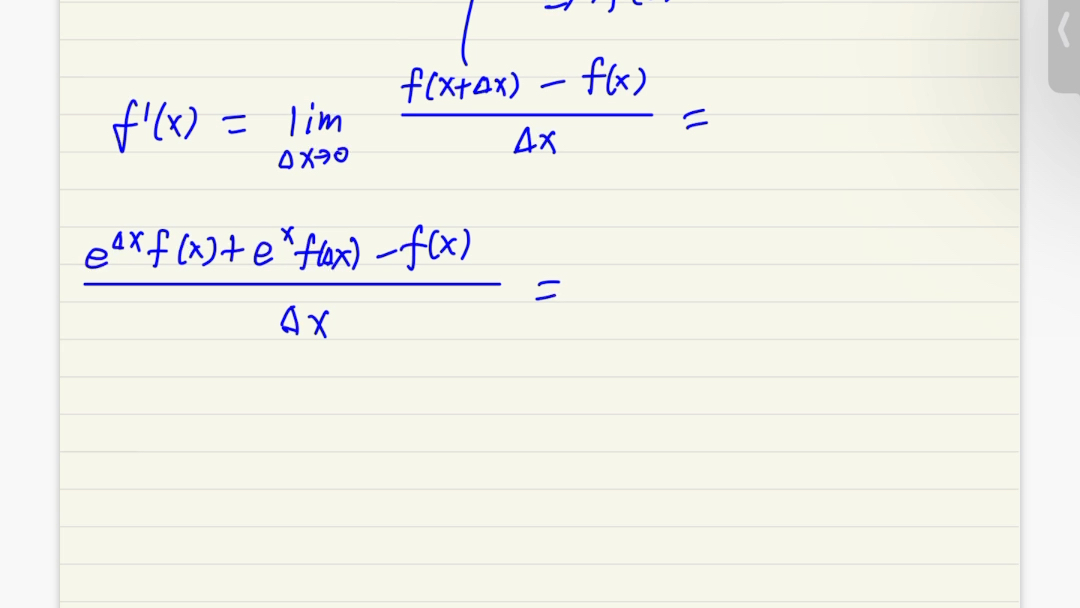 f'(x) = lim Δx→0 f(x+Δx) − f(x) / Δx =
e^Δx f(x) + e^x f(Δx) − f(x) / Δx =